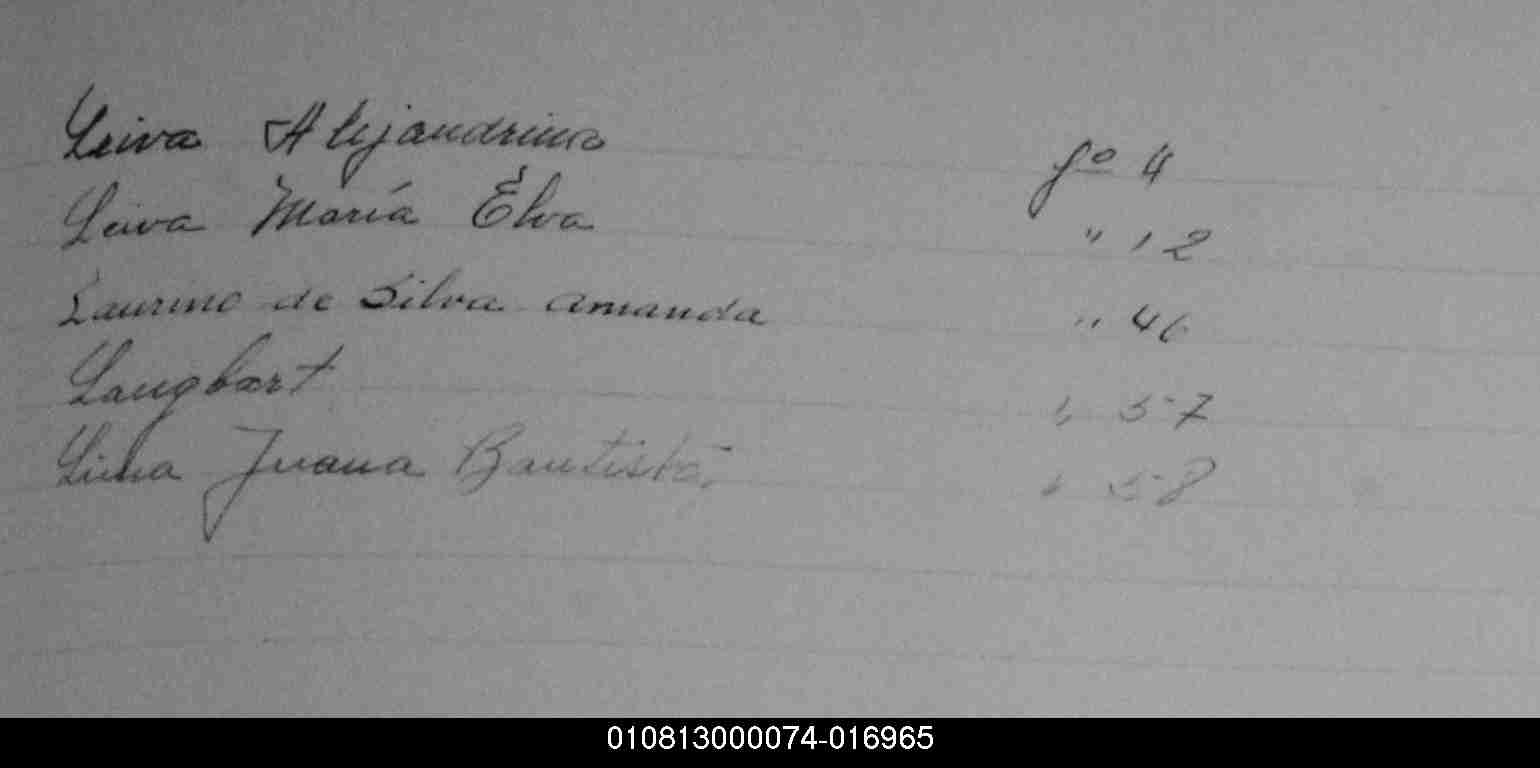 Leiva Alejandrina fº 4
Leiva María Élva " 12
Laurino de Silva Amanda " 46
Langbart " 57
Lima Juana Bautista " 58
010813000074-016965